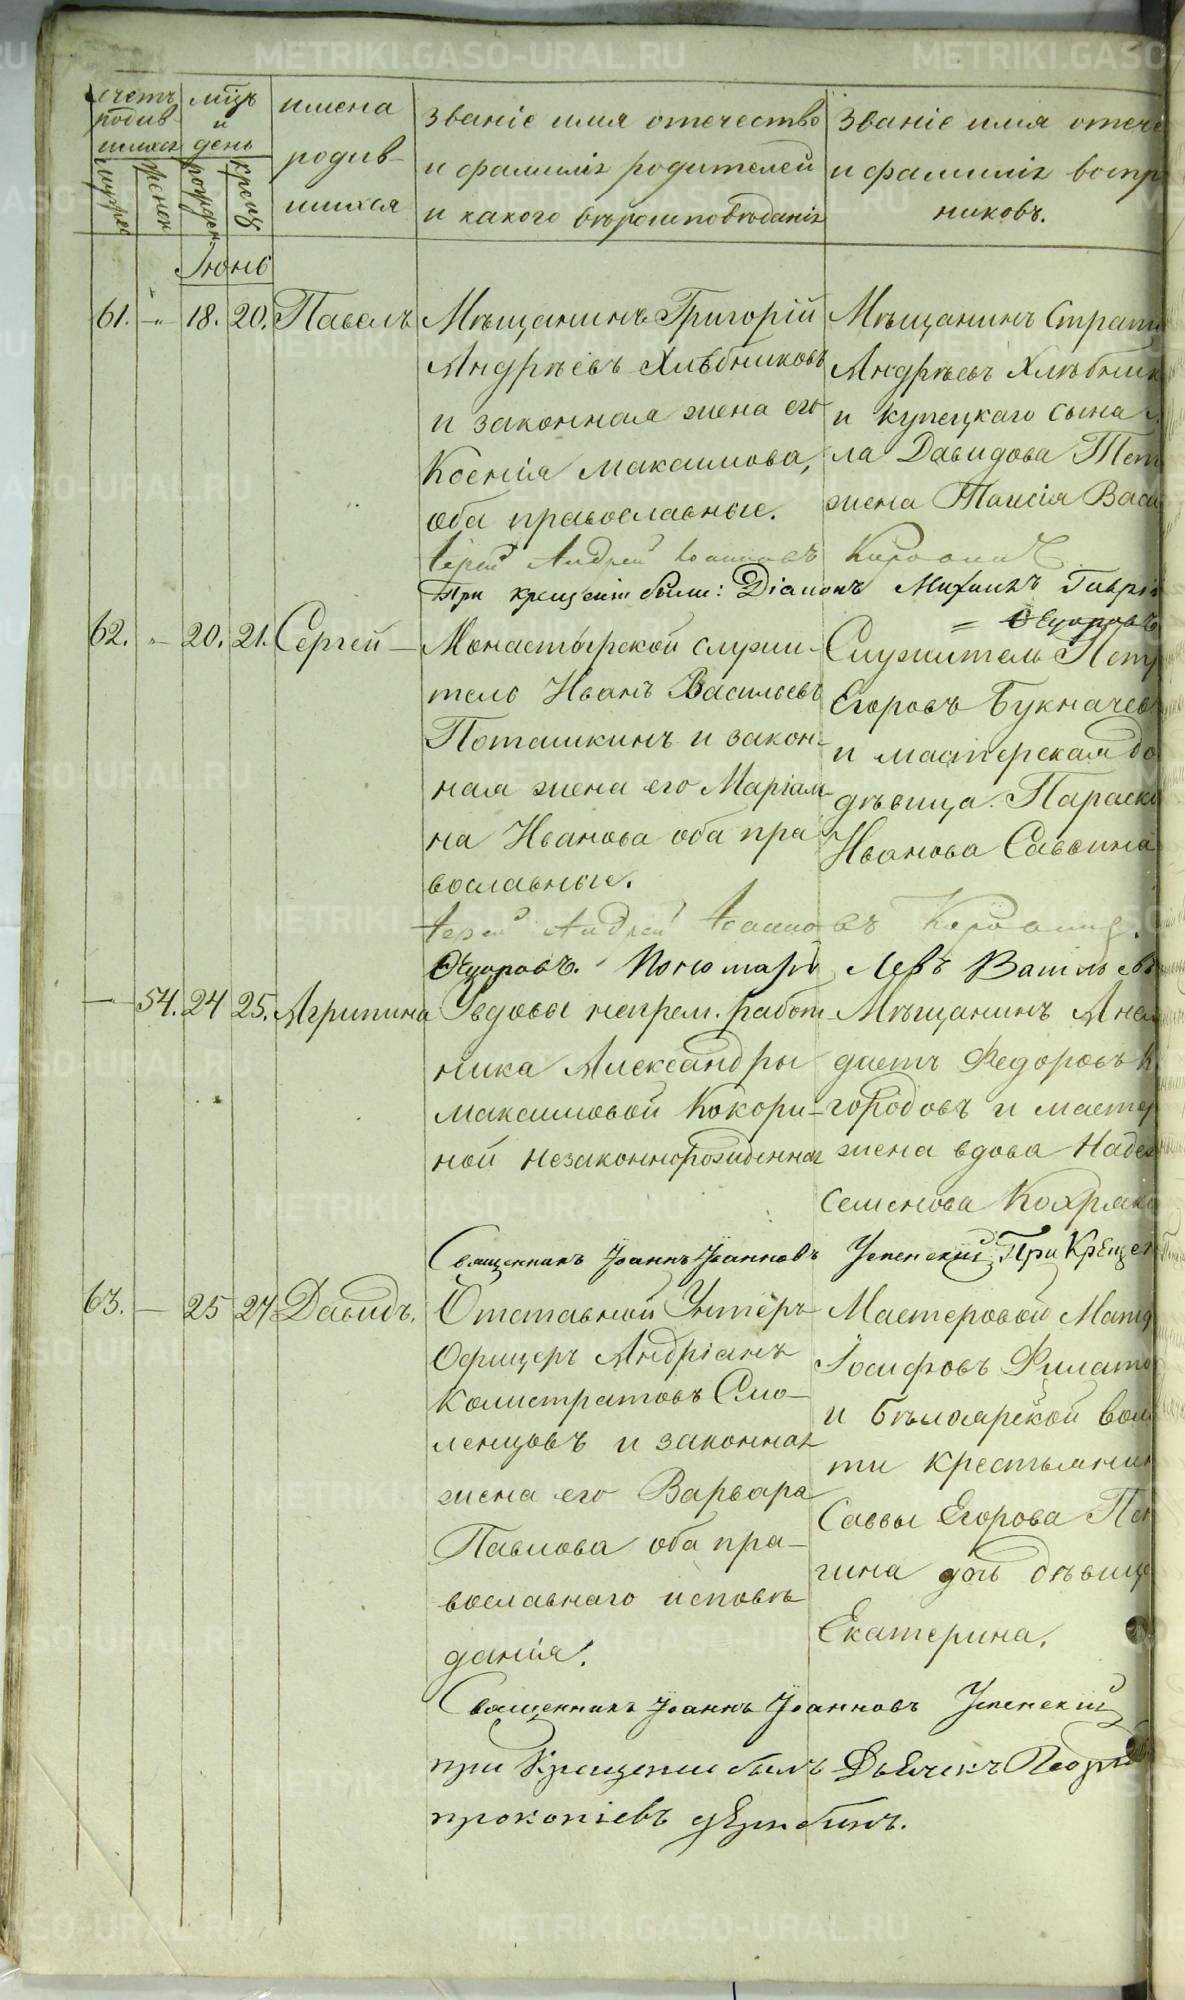 METRIKI.GASO-URAL.RU
счетъ родив-шихся
мужес
женск
мѣцъ и день
рожден.
крещ
имена родив-шихся
Званіе имя отечество
и фамилія родителей
и какого вѣроисповѣданія
Званіе имя отече
и фамилія воспр
никовъ.
Іюнь
61. — 18. 20. Павелъ
Мѣщанинъ Григорій
Андрѣевъ Хлѣбниковъ
и законная жена его
Ксенія Максимова,
оба православные.
Мѣщанинъ Страти
Андрѣевъ Хлѣбник
и купецкаго сына
ла Давидова Тет
жена Таисія Васи
Іерей Андрей Іоанновъ
При крещеніи были: Діаконъ Михаилъ Гаврі
Ѳедоровъ
62. — 20. 21. Сергей —
Монастырской служи-
тель Иванъ Васильевъ
Поташкинъ и закон-
ная жена его Маріам-
на Иванова оба пра
вославные.
Служитель Петр
Егоровъ Букначев
и мастерская до
дѣвица Параске
Иванова Саввина
Іерей Андрей Іоанновъ
Ѳедоровъ. Пономарь Левъ Василье
— 54. 24 25. Агрипина
Увдовы непрем. работ
ника Александры
Максимовой Кокори-
ной незаконнорожденная
Мѣщанинъ Ана
Федоровъ К
городовъ и мастер
жена вдова Надеж
Семенова Кохряко
Священникъ Іоаннъ Іоанновъ Успенскій При Крещен
63. — 25 27 Давидъ.
Отставной Унтеръ
Офицеръ Андріанъ
Калистратовъ Смо-
ленцовъ и законная
жена его Варвара
Павлова оба пра-
вославнаго исповѣ
данія.
Мастеровой Матф
Іосифовъ Филато
и бѣлоярской вол
ти крестьянин
Саввы Егорова Пен
гина дочь дѣвица
Екатерина.
Священникъ Іоаннъ Іоанновъ Успенскій
при Крещеніи былъ Дьячекъ Георгі
прокопіевъ